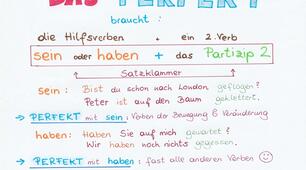 DAS PERFEKT
braucht :
die Hilfsverben + ein 2. Verb
sein oder haben + das Partizip 2
Satzklammer
sein : Bist du schon nach London geflogen?
Peter ist auf den Baum geklettert.
→ PERFEKT mit sein : Verben der Bewegung & Veränderung
haben: Haben Sie auf mich gewartet?
Wir haben noch nichts gegessen.
→ PERFEKT mit haben : fast alle anderen Verben